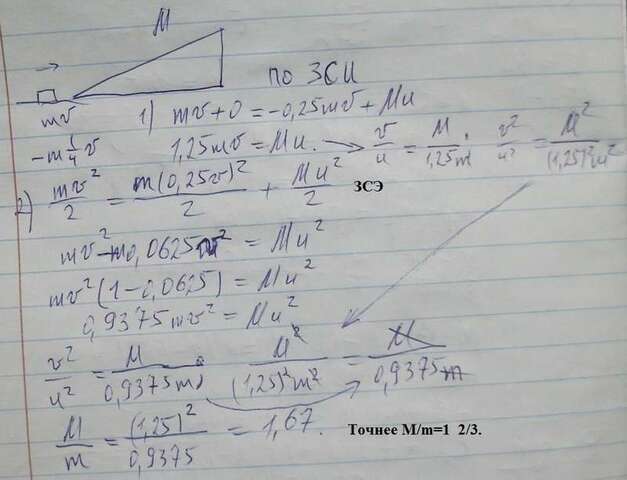 M
mv
-m 1/4 v
по ЗСИ
1) mv+0 = -0,25mv + Mu
1,25mv = Mu. → v/u = M/1,25m ; v²/u² = M²/(1,25)²m²
2) mv²/2 = m(0,25v)²/2 + Mu²/2 ЗСЭ
mv² - m0,0625v² = Mu²
mv²(1-0,0625) = Mu²
0,9375mv² = Mu²
v²/u² = M/0,9375m ; M²/(1,25)²m² = M/0,9375m
M/m = (1,25)²/0,9375 = 1,67. Точнее M/m=1 2/3.